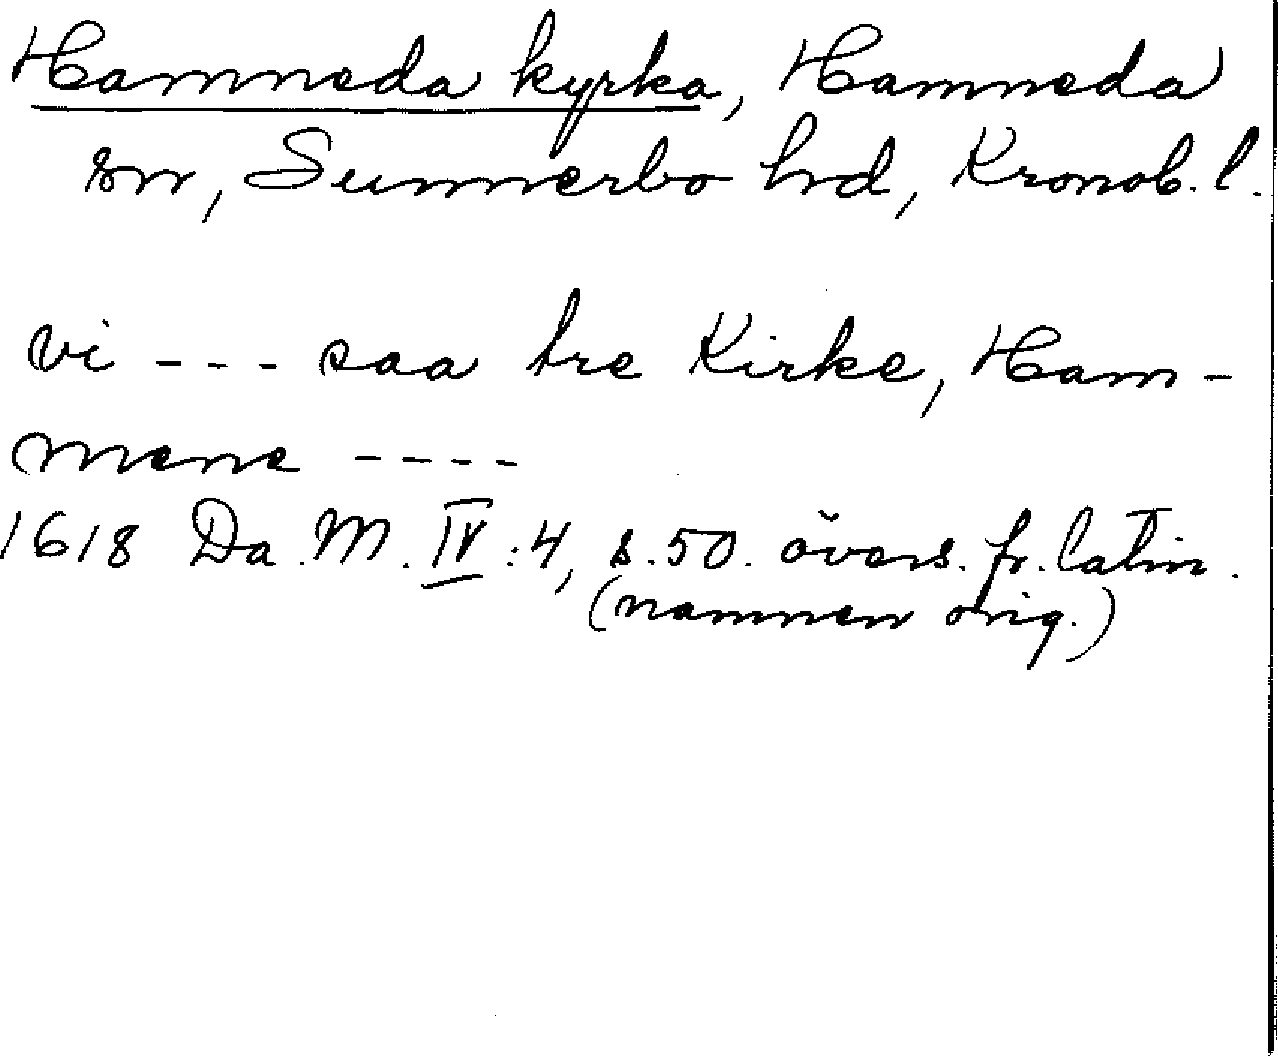 Hamneda kyrka, Hamneda
sn, Sunnerbo hd, Kronob. l.
vi - - - saa tre Kirke, Ham-
mene - - - -
1618 Da. M. IV:4, s. 50. övers. fr. latin.
(namnen orig.)